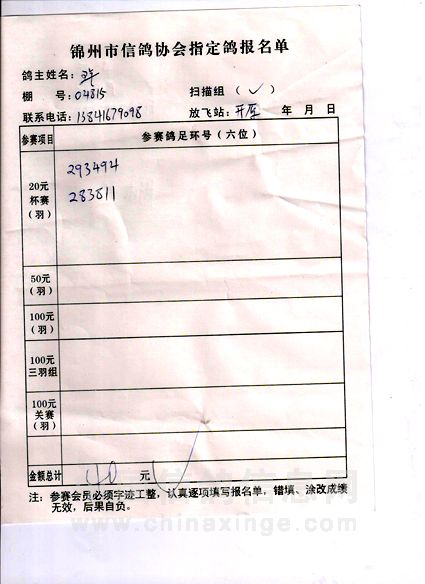 锦州市信鸽协会指定鸽报名单
鸽主姓名：
棚 号：04815 扫描组（✓）
联系电话：15841679098 放飞站：开原 年 月 日
参赛项目 参赛鸽足环号（六位）
20元
杯赛
（羽）
293494
283811
50元
（羽）
100元
（羽）
100元
三羽组
100元
关赛
（羽）
金额总计 40 元
注：参赛会员必须字迹工整，认真逐项填写报名单，错填、涂改成绩
无效，后果自负。
www.chinaxinge.com